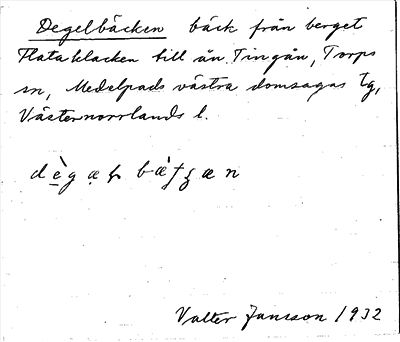 Degelbäcken bäck från berget
Flataklacken till ån Tingån, Torps
sn, Medelpads västra domsagas tg,
Västernorrlands l.
Valter Jansson 1932